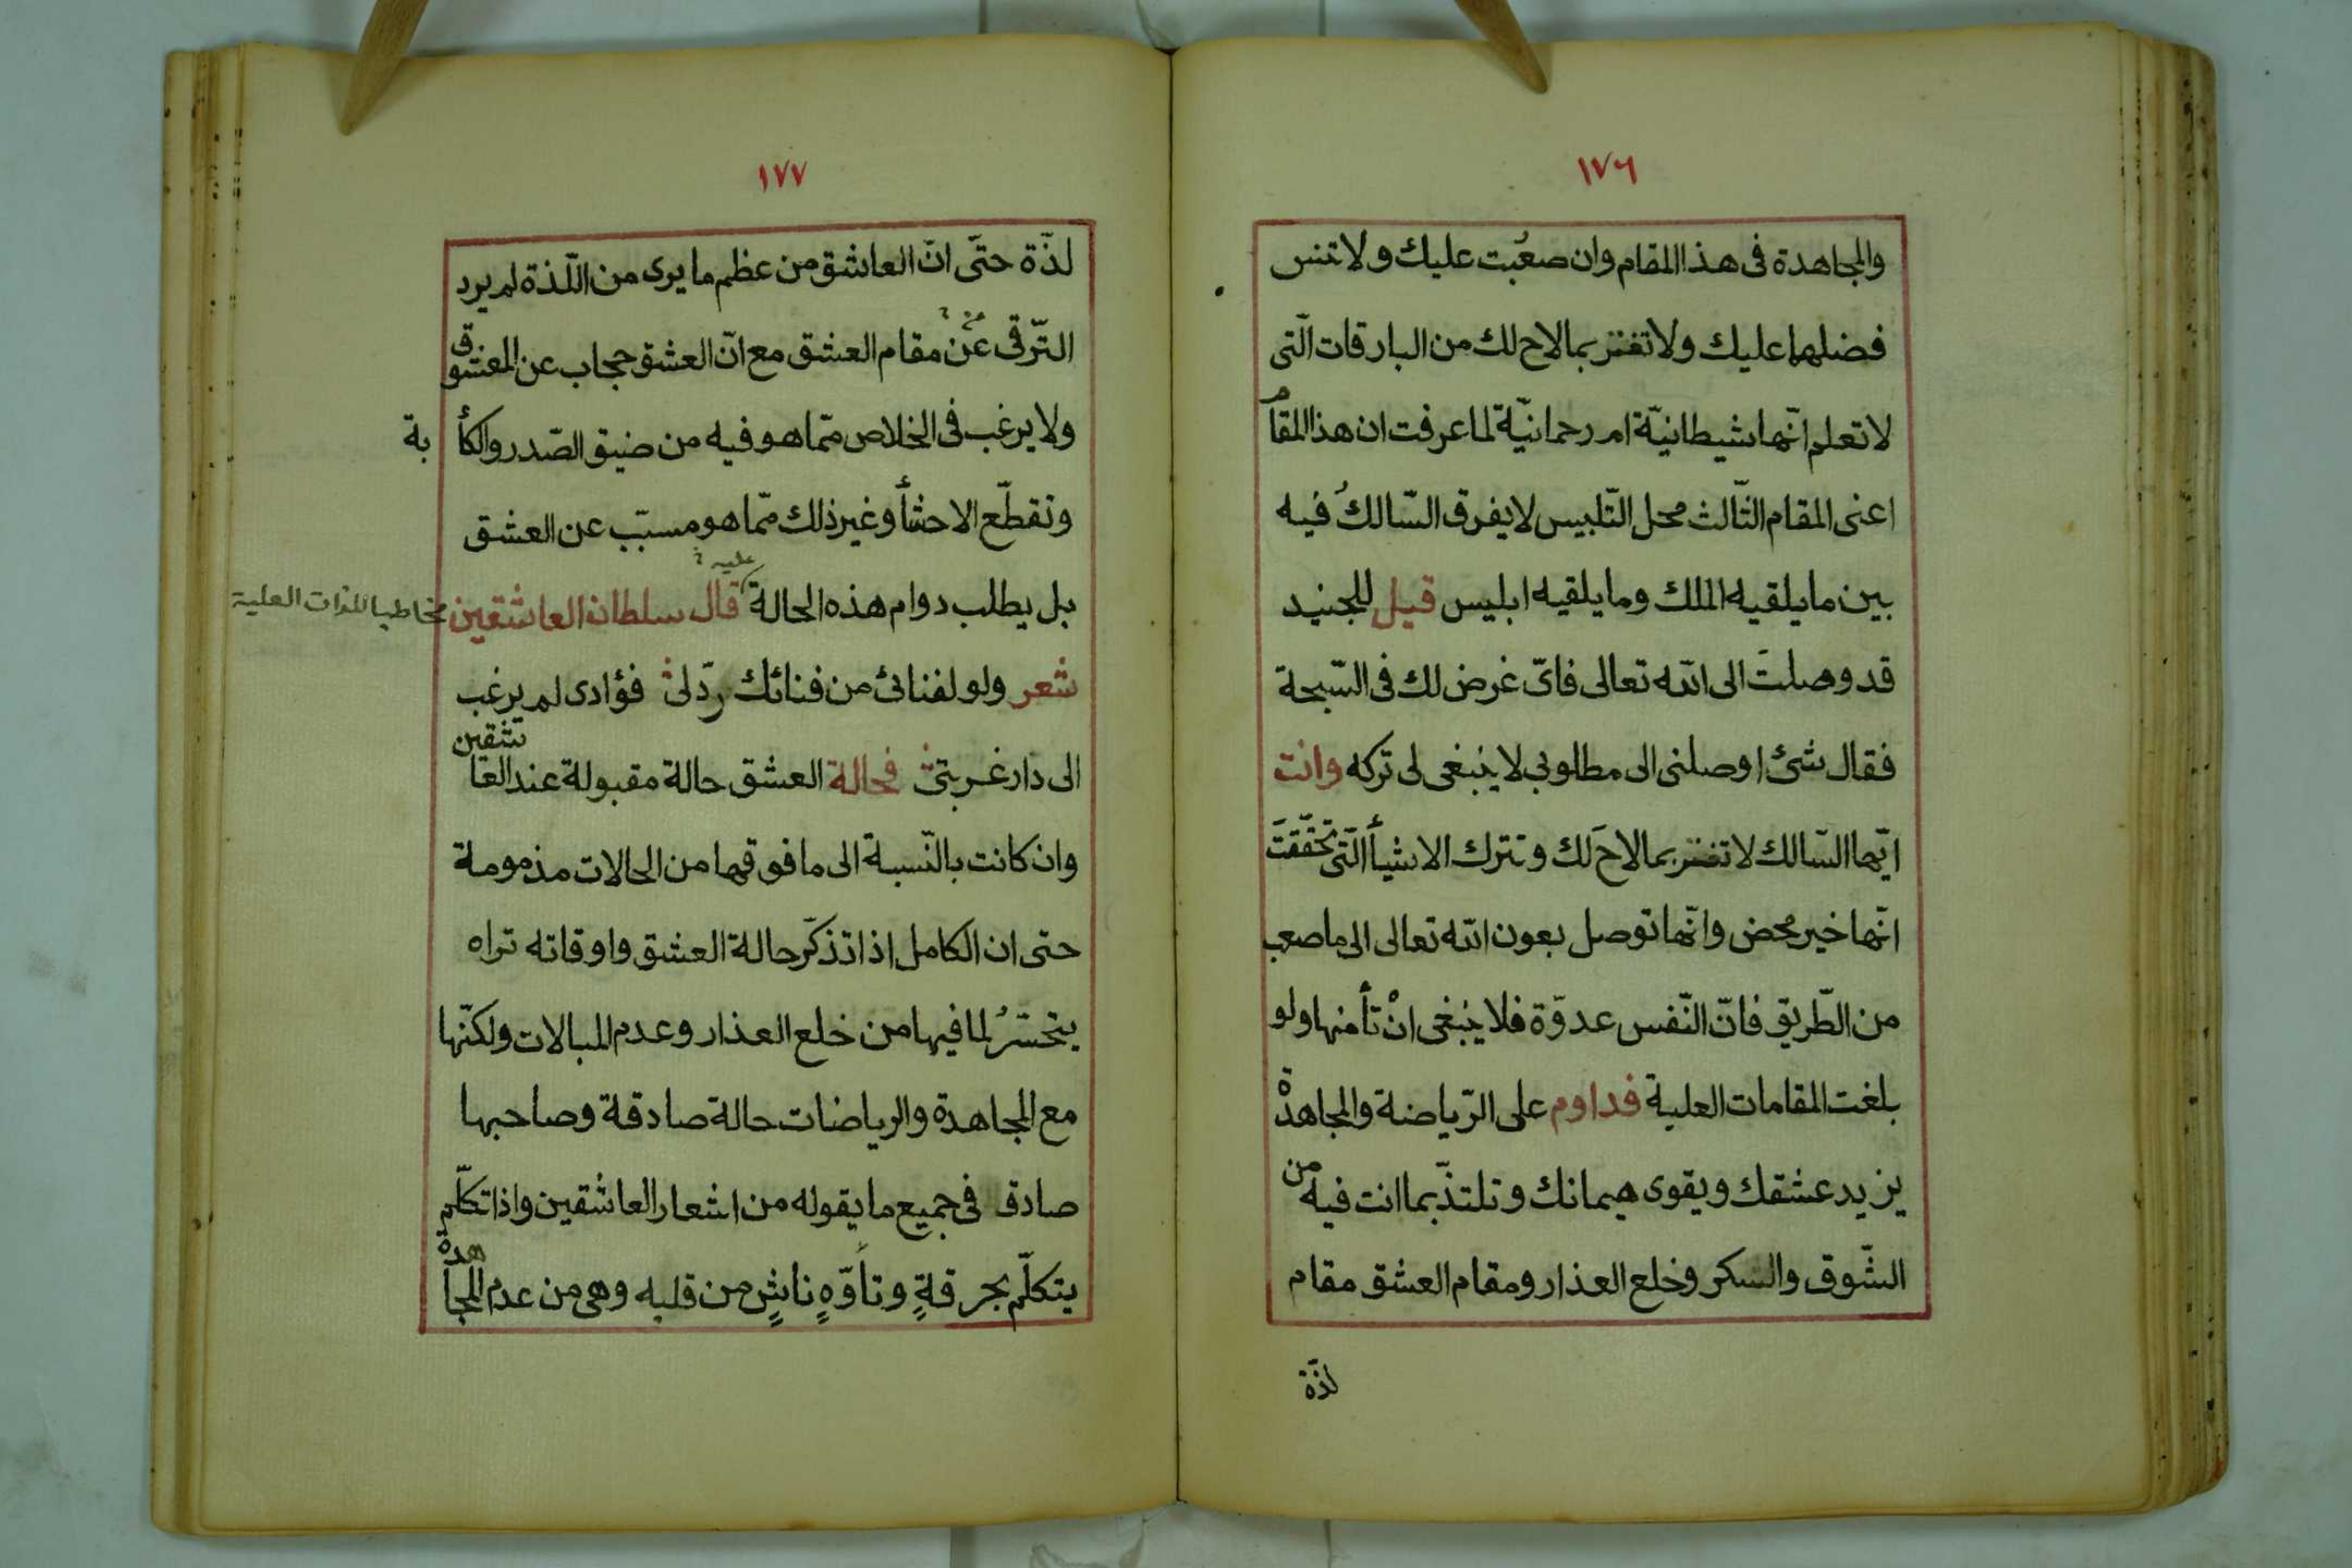 ١٧٦
والمجاهدة فى هذا المقام وان صعُبت عليك ولا تنس
فضلهما عليك ولا تغتر بما لاح لك من البارقات الّتى
لا تعلم انّها شيطانيّة ام رحمانيّة لما عرفت ان هذا المقام
اعنى المقام الثّالث محل التّلبيس لا يفرق السّالكُ فيه
بين ما يلقيه الملك وما يلقيه ابليس قيل للجنيد
قد وصلتَ الى الله تعالى فاىّ غرض لك فى السّبحة
فقال شئ اوصلنى الى مطلوبى لا ينبغى لى تركه وانت
ايّها السّالك لا تغتر بما لاحَ لك وتترك الاشيأ الّتى تحَقّقتَ
انّها خير محض وانّها توصل بعون الله تعالى الى ما صعب
من الطّريق فانّ النّفس عدوّة فلا ينبغى انْ تأمنها ولو
بلغت المقامات العلية فداوم على الرّياضة والمجاهدة
يزيد عشقك ويقوى هيمانك وتلتذّ بما انت فيه من
الشّوق والسكر وخلع العذار ومقام العشق مقام
لذّة
١٧٧
لذّة حتّى انّ العاشق من عظم ما يرى من اللّذة لم يرد
التّرقى عَنْ مقام العشق مع انّ العشق حجاب عن المعشوق
ولا يرغب فى الخلاص ممّا هو فيه من ضيق الصّدر والكأبة
وتقطّع الاحشأ وغير ذلك ممّا هو مسبّب عن العشق
بل يطلب دوام هذه الحالة قال سلطان العاشقين مخاطبا للذات العلية
عليه
شعر ولو لفنائى من فنائك ردّ لى فؤادى لم يرغب
الى دار غربتى فحالة العشق حالة مقبولة عند العاشقين
وان كانت بالنّسبة الى ما فوقها من الحالات مذمومة
حتى ان الكامل اذا تذكّر حالة العشق واوقاته تراه
يتحسّرُ لما فيها من خلع العذار وعدم المبالات ولكنّها
مع المجاهدة والرياضات حالة صادقة وصاحبها
صادق فى جميع ما يقوله من اشعار العاشقين واذا تكلّم
يتكلّم بحرقةٍ وتأوّهٍ ناشٍ من قلبه وهى من عدم المجاهدة